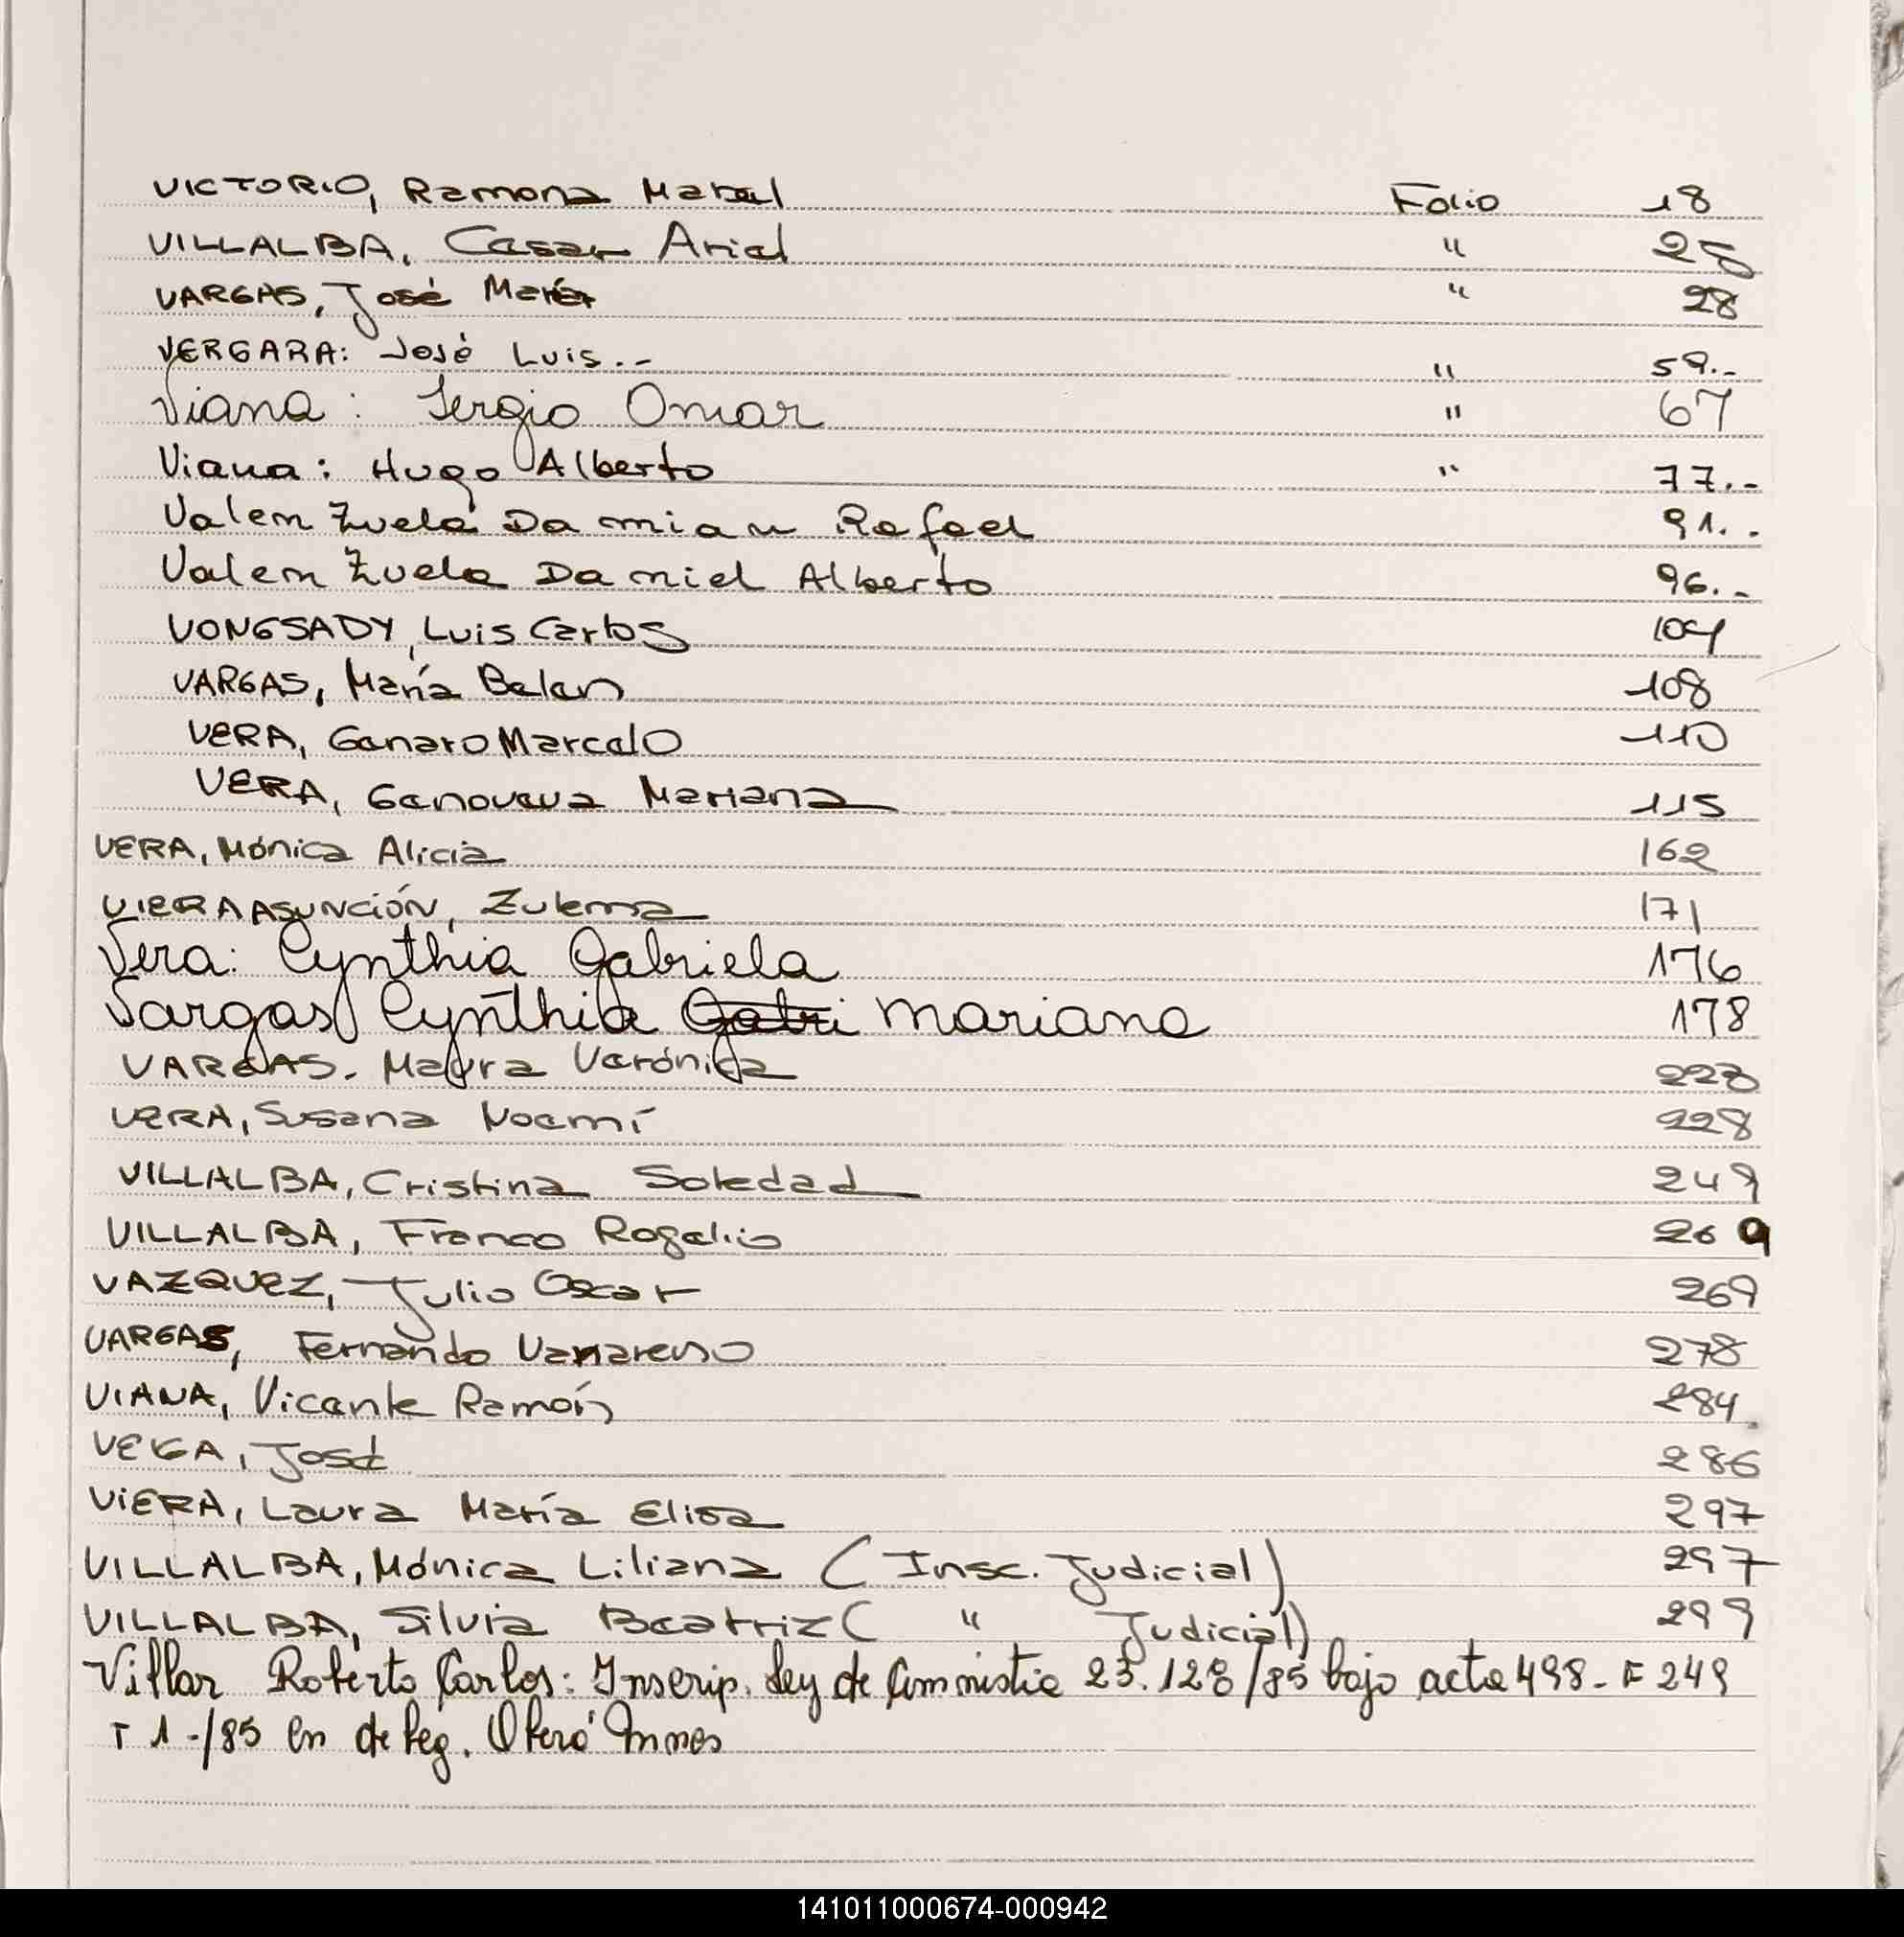 VICTORIO, Ramona Mabel Folio 18
VILLALBA, Cesar Ariel " 25
VARGAS, José María " 28
VERGARA: José Luis.- " 59.-
Viana: Sergio Omar " 67
Viana: Hugo Alberto " 77.-
Valenzuela Damian Rafael 91.-
Valenzuela Daniel Alberto 96.-
VONGSADY, Luis Carlos 104
VARGAS, María Belen 108
VERA, Genaro Marcelo 110
VERA, Genoveva Mariana 115
VERA, Mónica Alicia 162
VIERA ASUNCIÓN, Zulema 171
Vera: Cynthia Gabriela 176
Vargas Cynthia Gabri Mariana 178
VARGAS. Mayra Verónica
VERA, Susana Noemí 228
VILLALBA, Cristina Soledad 249
VILLALBA, Franco Rogelio 269
VAZQUEZ, Julio Oscar 269
VARGAS, Fernando 278
VIANA, Vicente Ramón 284
VEGA, José 286
VIERA, Laura María Elisa 297
VILLALBA, Mónica Liliana (Insc. Judicial) 297
VILLALBA, Silvia Beatriz ( " Judicial) 299
Villar Roberto Carlos: Inscrip. Ley de Amnistia 23.128/85 bajo acta 498 - F 249
T 1 -/85 en deleg. Oberá Mnes
141011000674-000942